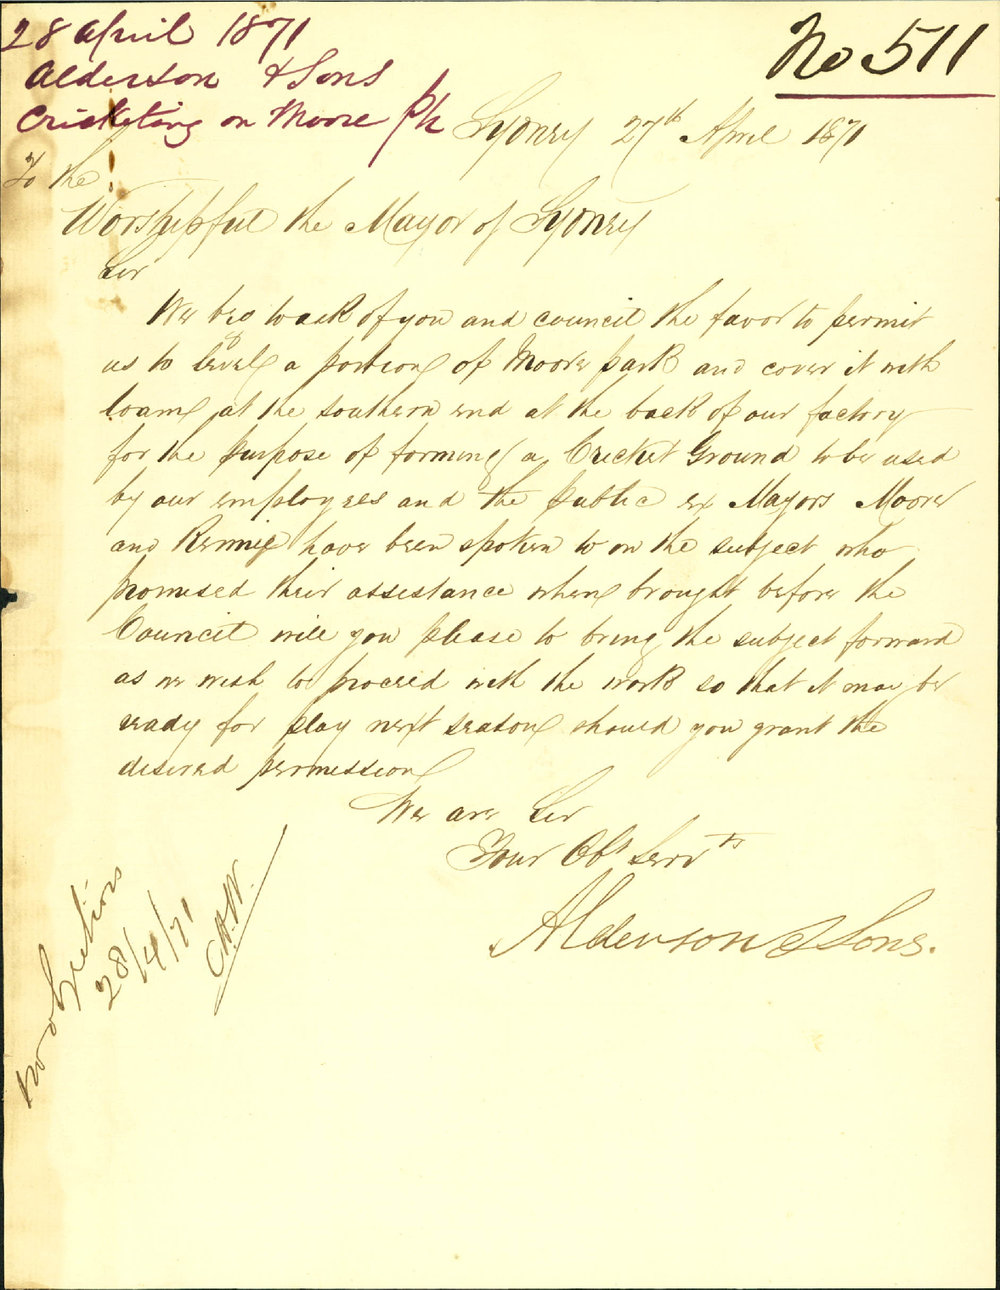 28 April 1871
Alderson & Sons
Cricketing on Moore Pk
No 511
Sydney 27th April 1871
To the
Worshipful the Mayor of Sydney
Sir
We beg to ask of you and council the favor to permit
us to level a portion of Moore park and cover it with
loam at the southern end at the back of our factory
for the purpose of forming a Cricket Ground to be used
by our employees and the public ex Mayors Moore
and Rennie have been spoken to on the subject who
promised their assistance when brought before the
Council will you please to bring the subject forward
as we wish to proceed with the work so that it may be
ready for play next season should you grant the
desired permission
We are Sir
Your Obt Servts
Alderson & Sons.
no objections
28/4/71